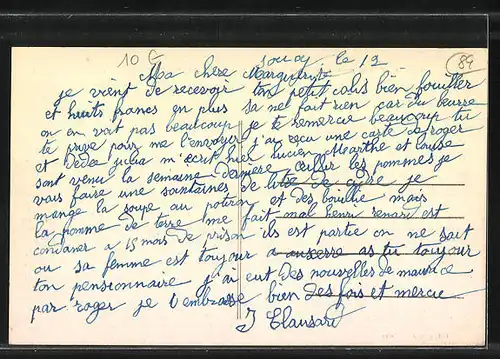 10 G
84
Soucy le 12
Ma chère Marguerite
je vient de recevoir ton petit colis bien fouiller
et huits francs en plus sa ne fait rien car du beurre
on on voit pas beaucoup je te remercie beaucoup tu
te prive pour me l'envoyer j'ai reçu une carte de roger
et Dédé julia m'ecrit hier lucien Marthe et louise
sont venu la semaine derniere ceuillir les pommes je
vais faire une soixantaines de litre de cidre je
mange la soupe au potiron et des bouillie mais
la pomme de terre me fait mal henri renard est
condaner a 15 mois de prison ils est partie on ne sait
ou sa femme est toujour a auxerre as tu toujour
ton pensionnaire j'ai eut des nouvelles de maurice
par roger je t'embrasse bien des fois et mercie
J Clausard